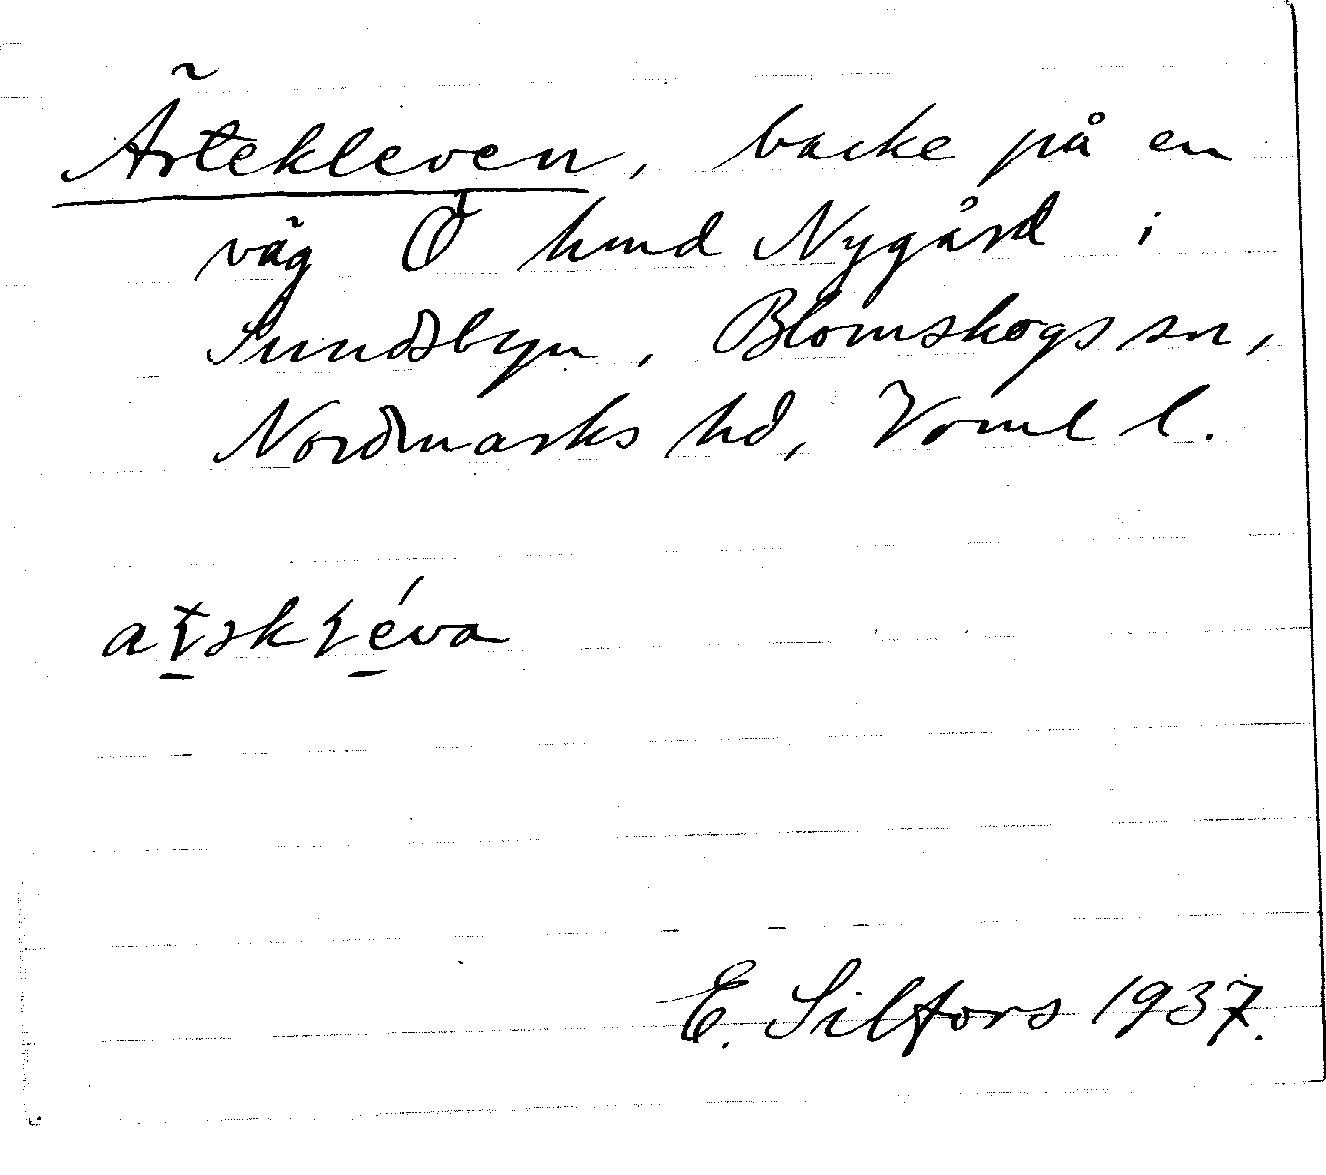 Ärtekleven, backe på en
väg Ö hmd Nygård i
Sundsbyn, Blomskogs sn,
Nordmarks hd, Vrml l.
E. Silfors 1937.